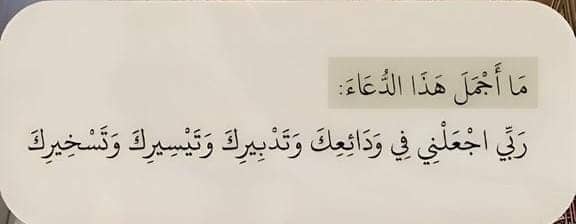 مَا أَجْمَلَ هَذَا الدُّعَاءَ:
رَبِّي اجْعَلْنِي فِي وَدَائِعِكَ وَتَدْبِيرِكَ وَتَيْسِيرِكَ وَتَسْخِيرِكَ